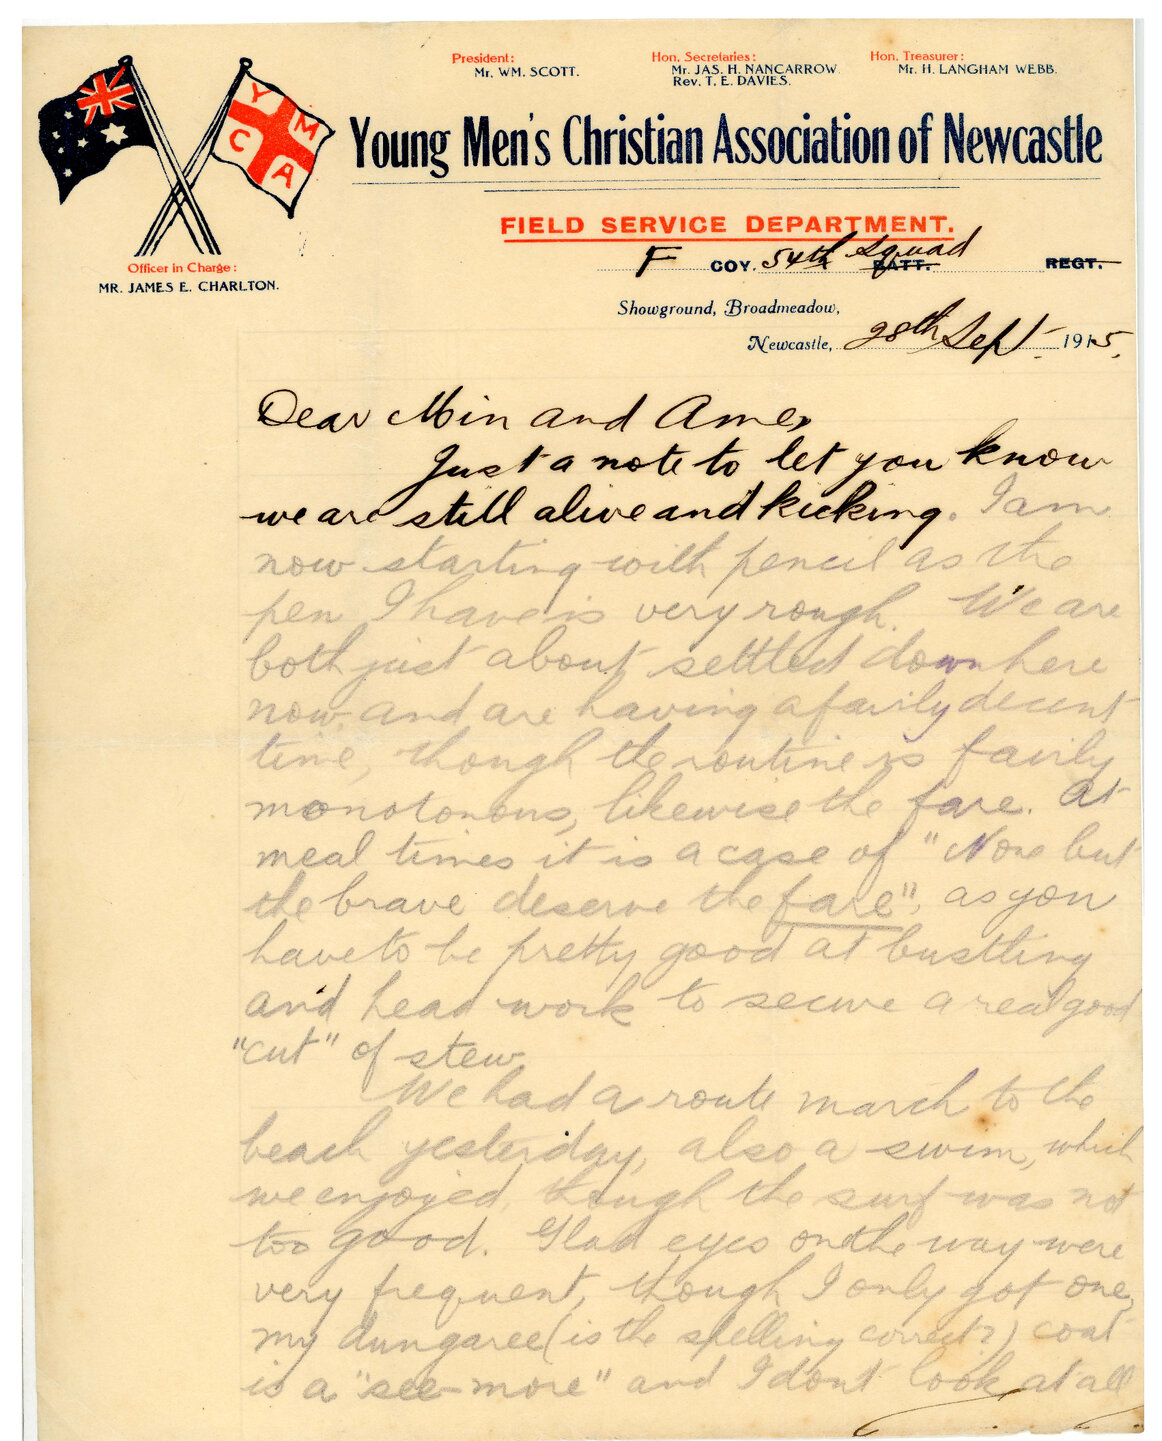 President:
Mr. WM. SCOTT.
Hon. Secretaries:
Mr. JAS. H. NANCARROW.
Rev. T. E. DAVIES.
Hon. Treasurer:
Mr. H. LANGHAM WEBB.
Y M C A
Young Men's Christian Association of Newcastle
FIELD SERVICE DEPARTMENT.
Officer in Charge:
MR. JAMES E. CHARLTON.
F COY. 54th Squad BATT. REGT.
Showground, Broadmeadow,
Newcastle, 28th Sept. 1915.
Dear Min and Ame,
Just a note to let you know
we are still alive and kicking. I am
now starting with pencil as the
pen I have is very rough. We are
both just about settled down here
now, and are having a fairly decent
time, though the routine is fairly
monotonous, likewise the fare. At
meal times it is a case of "None but
the brave deserve the fare", as you
have to be pretty good at bustling
and head work to secure a real good
"cut" of stew.
We had a route march to the
beach yesterday, also a swim, which
we enjoyed, though the surf was not
too good. Glad eyes on the way were
very frequent, though I only got one,
my dungaree (is the spelling correct?) coat
is a "see-more" and I dont look at all